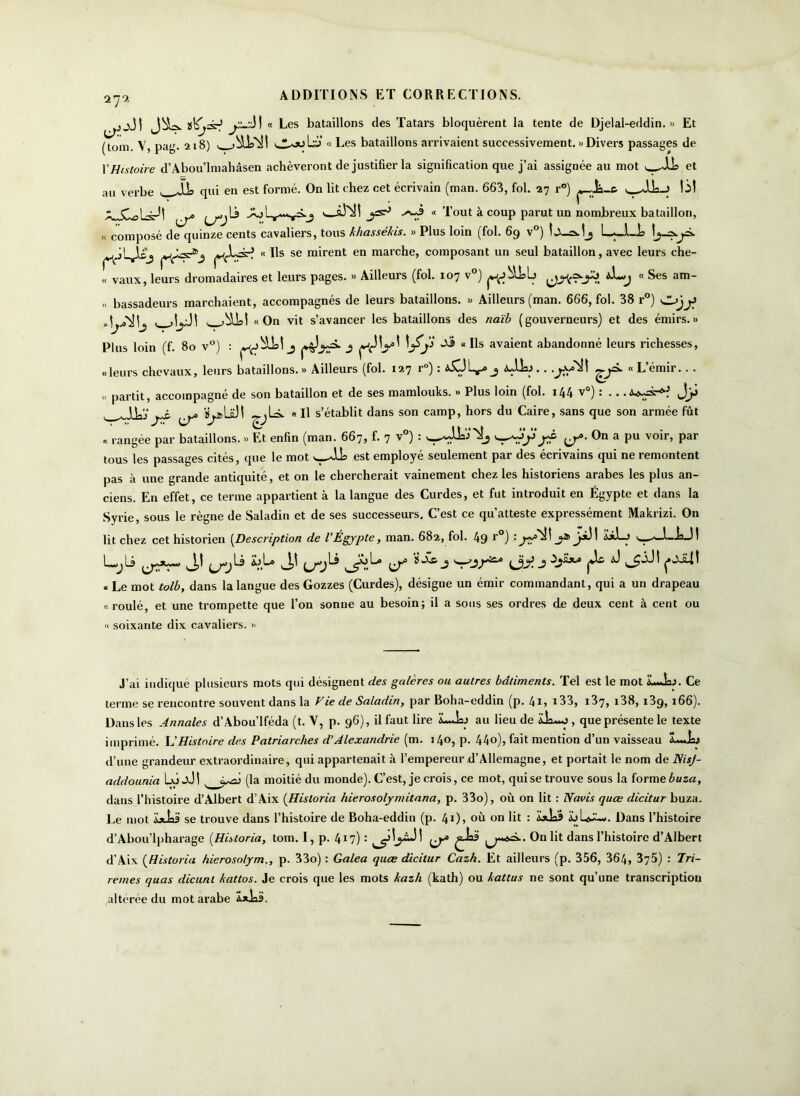 272 ADDITIONS ET CORRECTIONS.
« Les bataillons des Tatars bloquèrent la tente de Djelal-eddin. » Et
(tom. V, pag. 218) « Les bataillons arrivaient successivement. » Divers passages de
l'Histoire d'Abou'lmahâsen achèveront de justifier la signification que j'ai assignée au mot طلب et
au verbe طلب qui en est formé. On lit chez cet écrivain (man. 663, fol. 27 r°)
« Tout à coup parut un nombreux bataillon,
« composé de quinze cents cavaliers, tous khassékis. » Plus loin (fol. 69 v°)
« Ils se mirent en marche, composant un seul bataillon, avec leurs che-
« vaux, leurs dromadaires et leurs pages. » Ailleurs (fol. 107 v°) « Ses am-
« bassadeurs marchaient, accompagnés de leurs bataillons. » Ailleurs (man. 666, fol. 38 r°)
« On vit s'avancer les bataillons des naïb (gouverneurs) et des émirs. »
Plus loin (f. 80 v°) : « Ils avaient abandonné leurs richesses,
« leurs chevaux, leurs bataillons. » Ailleurs (fol. 127 r°) : « L'émir. . .
« partit, accompagné de son bataillon et de ses mamlouks. » Plus loin (fol. 144 v°) : . . .
« Il s'établit dans son camp, hors du Caire, sans que son armée fût
« rangée par bataillons. » Et enfin (man. 667, f. 7 v°) : من غير ترتيب ولا تطليب. On a pu voir, par
tous les passages cités, que le mot طلب est employé seulement par des écrivains qui ne remontent
pas à une grande antiquité, et on le chercherait vainement chez les historiens arabes les plus an-
ciens. En effet, ce terme appartient à la langue des Curdes, et fut introduit en Égypte et dans la
Syrie, sous le règne de Saladin et de ses successeurs. C'est ce qu'atteste expressément Makrizi. On
lit chez cet historien (Description de l'Égypte, man. 682, fol. 49 r°) :
« Le mot tolb, dans la langue des Gozzes (Curdes), désigne un émir commandant, qui a un drapeau
« roulé, et une trompette que l'on sonne au besoin; il a sous ses ordres de deux cent à cent ou
« soixante dix cavaliers. »
J'ai indiqué plusieurs mots qui désignent des galères ou autres bâtiments. Tel est le mot بطسة. Ce
terme se rencontre souvent dans la Vie de Saladin, par Boha-eddin (p. 41, 133, 137, 138, 139, 166).
Dans les Annales d'Abou'lféda (t. V, p. 96), il faut lire بطسة au lieu de , que présente le texte
imprimé. L'Histoire des Patriarches d'Alexandrie (m. 140, p. 440), fait mention d'un vaisseau بطسة
d'une grandeur extraordinaire, qui appartenait à l'empereur d'Allemagne, et portait le nom de Nisf-
addounia نصف الدنيا (la moitié du monde). C'est, je crois, ce mot, qui se trouve sous la forme buza,
dans l'histoire d'Albert d'Aix (Historia hierosolymitana, p. 330), où on lit : Navis quæ dicitur buza.
Le mot قطعة se trouve dans l'histoire de Boha-eddin (p. 41), où on lit : . Dans l'histoire
d'Abou'lpharage (Historia, tom. I, p. 417) : خمس قطع من الشواني. On lit dans l'histoire d'Albert
d'Aix (Historia hierosolym., p. 330) : Galea quæ dicitur Cazh. Et ailleurs (p. 356, 364, 375) : Tri-
remes quas dicunt kattos. Je crois que les mots kazh (kath) ou kattus ne sont qu'une transcription
altérée du mot arabe قطعة.